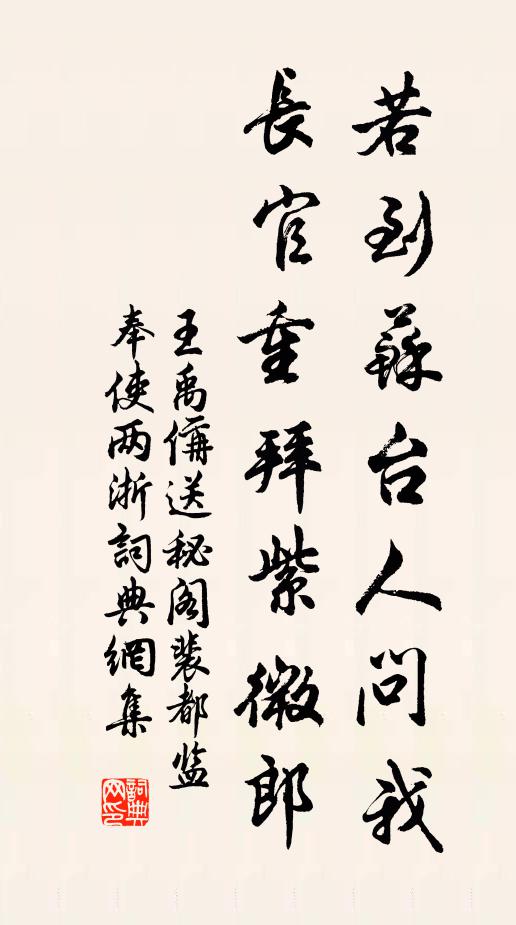 若到蘇台人問我
長官重拜紫微郎
王禹偁送秘阁裴都监
奉使两浙詞典網集
詞典网印